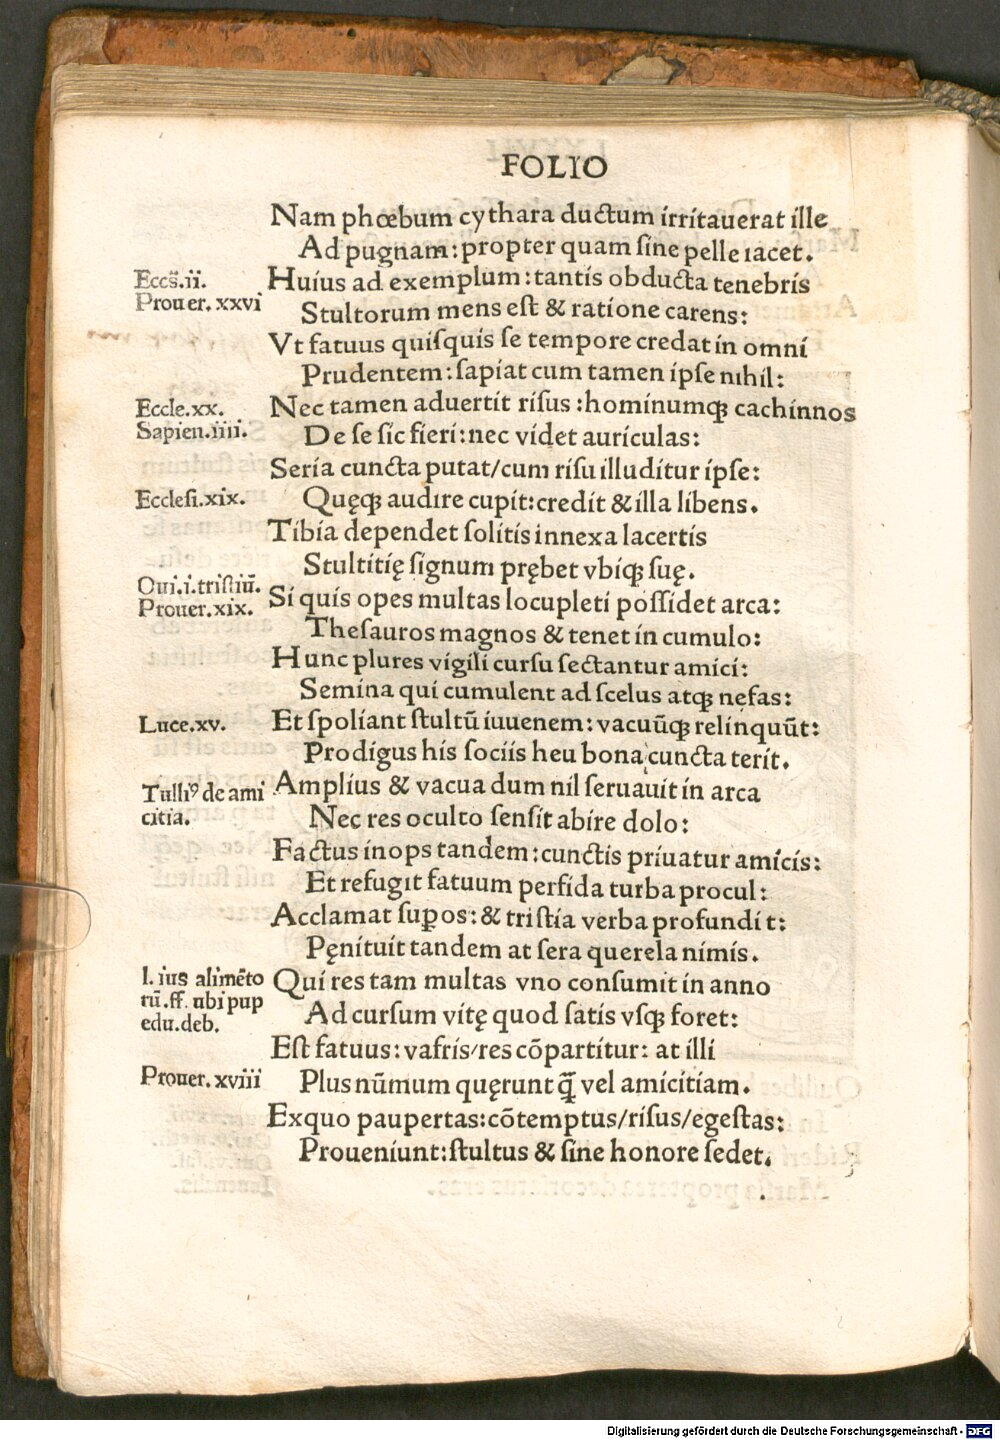 FOLIO
Nam phœbum cythara ductum irritauerat ille
Ad pugnam: propter quam sine pelle iacet.
Eccs̃.ii.
Huius ad exemplum: tantis obducta tenebris
Prouer. xxvi
Stultorum mens est & ratione carens:
Vt fatuus quisquis se tempore credat in omni
Prudentem: sapiat cum tamen ipse nihil:
Eccle.xx.
Nec tamen aduertit risus: hominumqꝫ cachinnos
Sapien.iiii.
De se sic fieri: nec videt auriculas:
Seria cuncta putat/cum risu illuditur ipse:
Ecclesi.xix.
Quęqꝫ audire cupit: credit & illa libens.
Tibia dependet solitis innexa lacertis
Stultitię signum prębet vbiqꝫ suę.
Oui.i.tristiũ.
Prouer.xix.
Si quis opes multas locupleti possidet arca:
Thesauros magnos & tenet in cumulo:
Hunc plures vigili cursu sectantur amici:
Semina qui cumulent ad scelus atqꝫ nefas:
Luce.xv.
Et spoliant stultũ iuuenem: vacuũqꝫ relinquũt:
Prodigus his sociis heu bona cuncta terit.
Tulliꝰ de ami
citia.
Amplius & vacua dum nil seruauit in arca
Nec res oculto sensit abire dolo:
Factus inops tandem: cunctis priuatur amicis:
Et refugit fatuum perfida turba procul:
Acclamat suꝑos: & tristia verba profundit:
Pęnituit tandem at sera querela nimis.
l. ius alimẽto
rũ.ff. ubi pup
edu.deb.
Qui res tam multas vno consumit in anno
Ad cursum vitę quod satis vsqꝫ foret:
Est fatuus: vafris/res cõpartitur: at illi
Prouer. xviii
Plus nũmum quęrunt q̃ vel amicitiam.
Exquo paupertas: cõtemptus/risus/egestas:
Proueniunt: stultus & sine honore sedet.
Digitalisierung gefördert durch die Deutsche Forschungsgemeinschaft - DFG